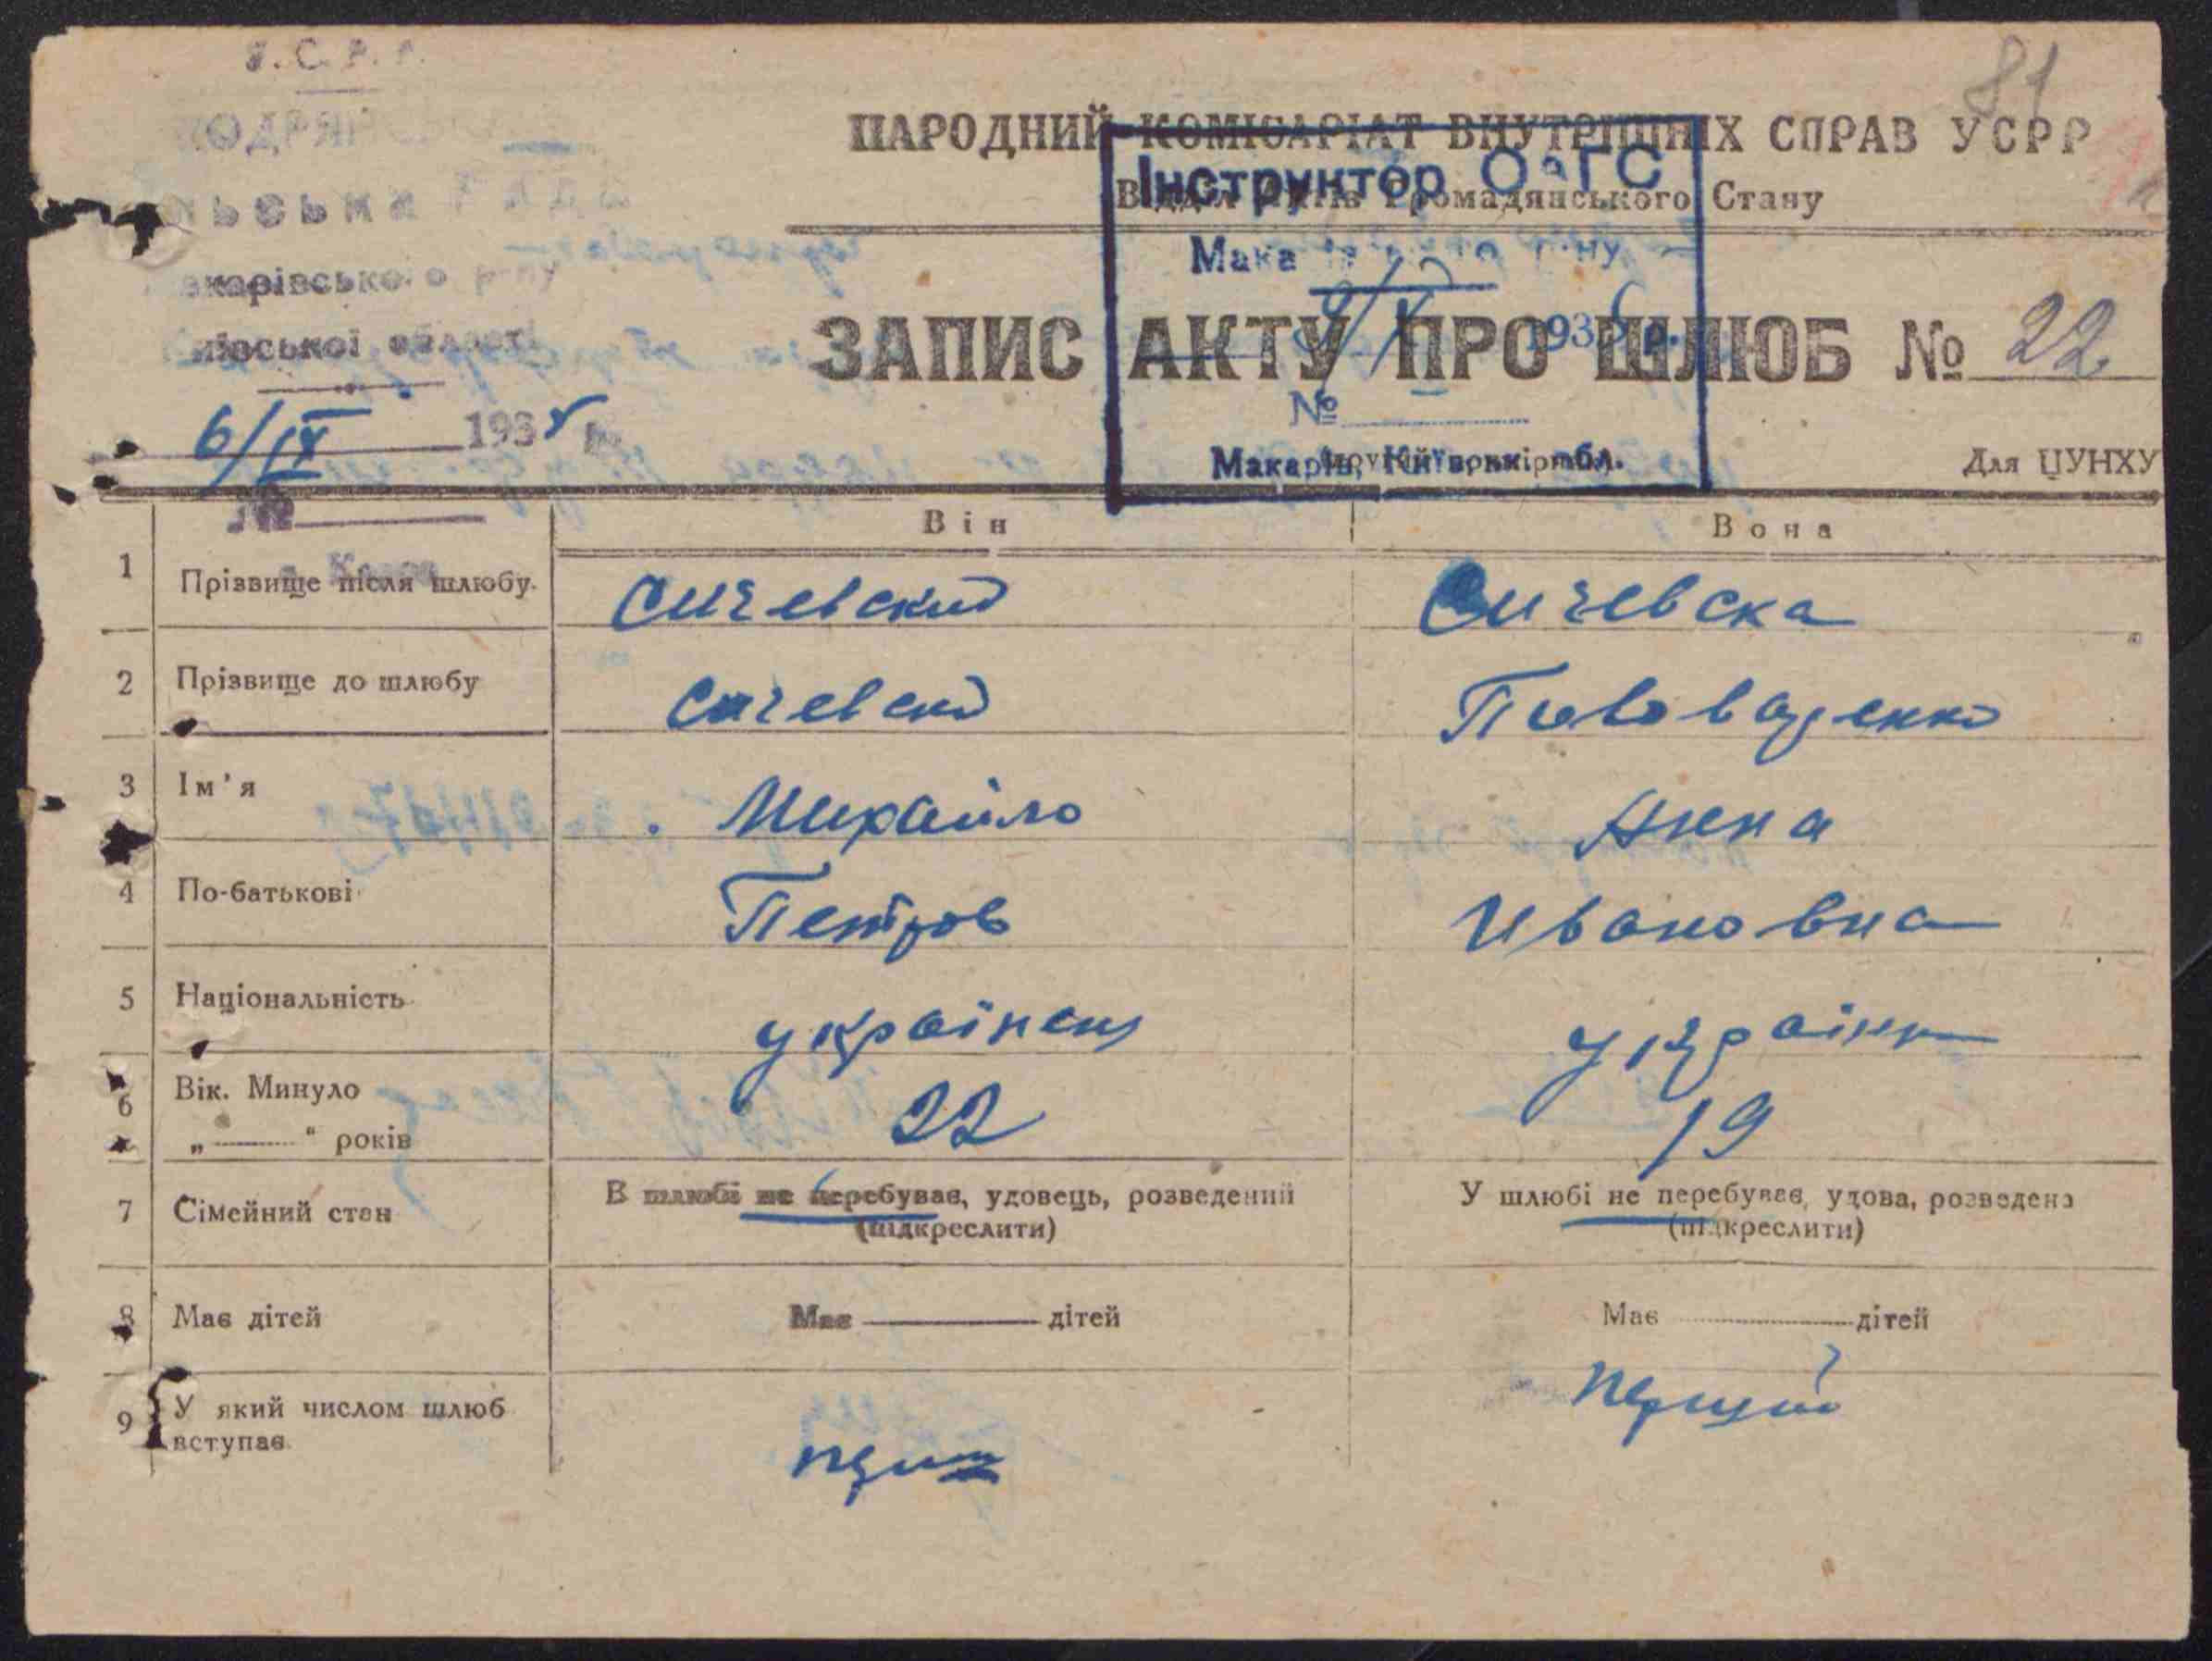 У.С.Р.Р.
КОДРЯНСЬКА
СІЛЬСЬКА РАДА
Макарівського р-ну
Київської області
6/IX 193 р.
№
81
НАРОДНИЙ КОМІСАРІАТ ВНУТРІШНІХ СПРАВ УСРР
Відділ Актів Громадянського Стану
Інструктор ОАГС
Макарівського р-ну
9/X 1936 р.
№
Макарів, Київської обл.
ЗАПИС АКТУ ПРО ШЛЮБ № 22
Для ЦУНХУ
Він Вона
1 Прізвище після шлюбу Сичевский Сичевска
2 Прізвище до шлюбу Сичевский Пивоваренко
3 Ім'я Михайло Анна
4 По-батькові Петров Ивановна
5 Національність українец українк
6 Вік. Минуло „—" років 22 19
7 Сімейний стан В шлюбі не перебував, удовець, розведений (підкреслити) У шлюбі не перебував, удова, розведена (підкреслити)
8 Має дітей Має — дітей Має — дітей
9 У який числом шлюб вступає перший